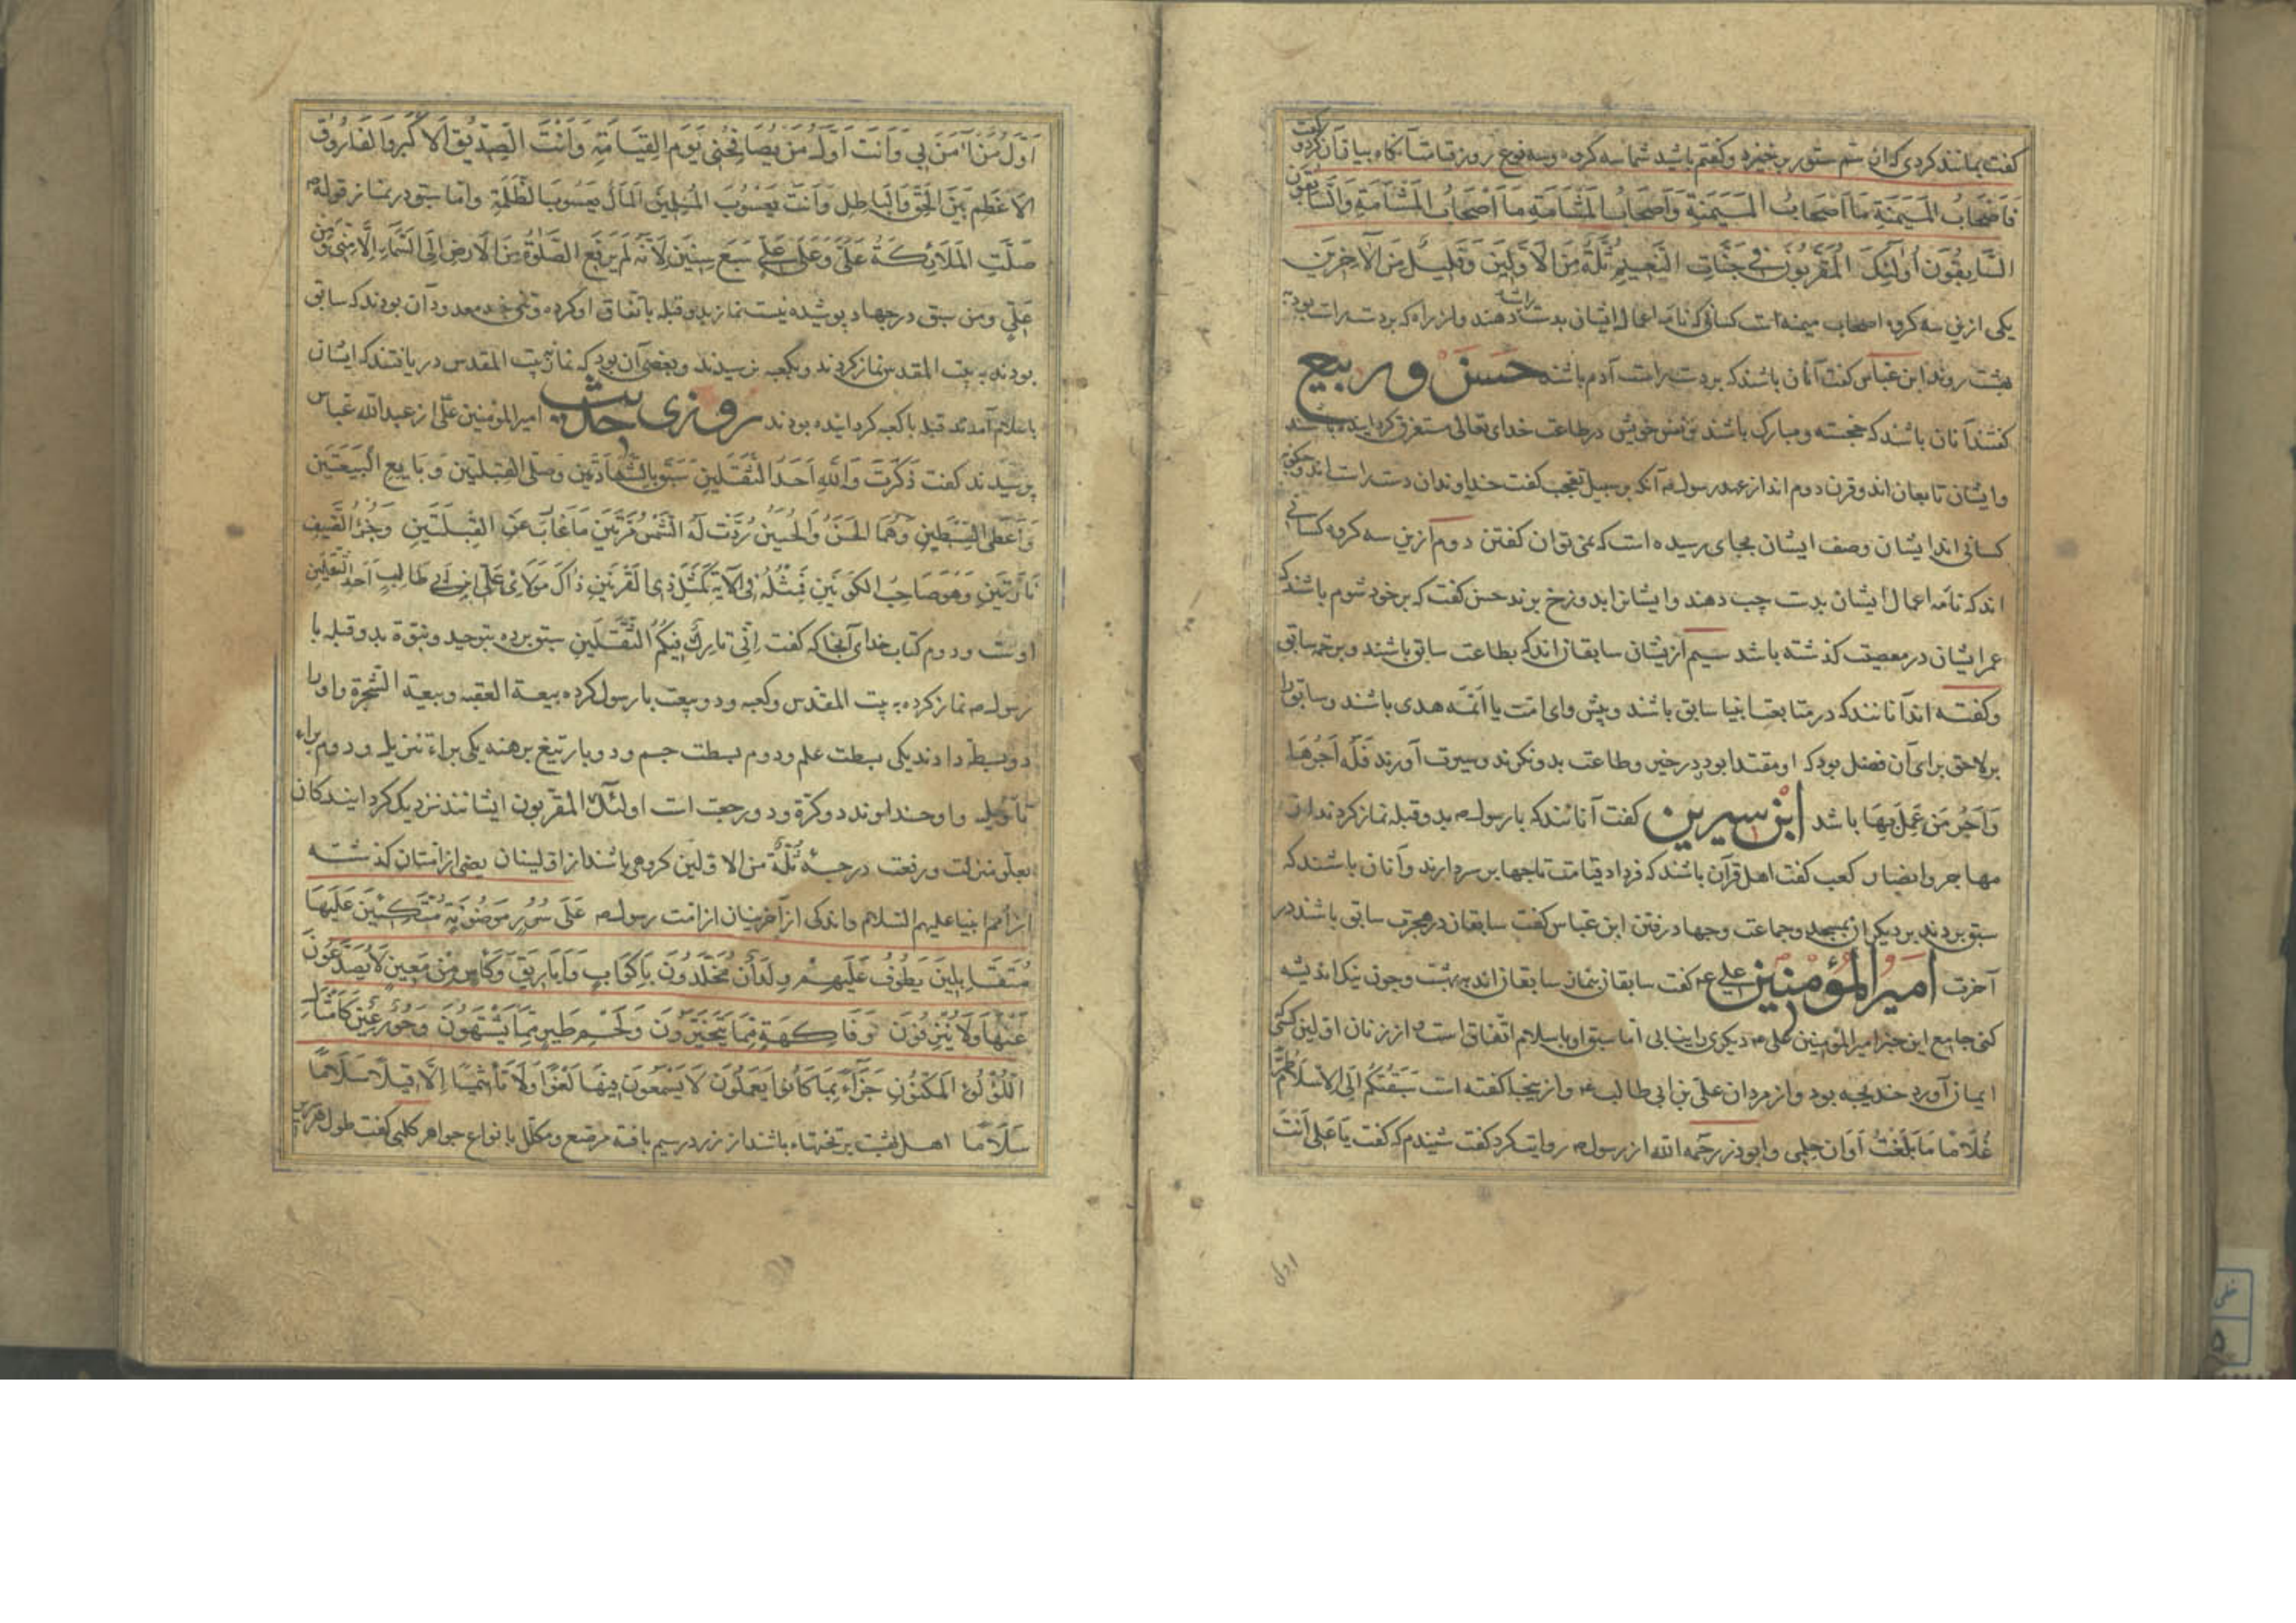 کفت بمانند کردی که از سم ستور برخیزد وکفتم باشید شما سه کروه وسه نوع روز قیامت آنکاه بیان آن کرد و کفت
فَاَصْحَابُ المَیْمَنَةِ مَا اَصْحَابُ المَیْمَنَةِ وَاَصْحَابُ المَشْاَمَةِ مَا اَصْحَابُ المَشْاَمَةِ وَالسَّابِقُونَ
السَّابِقُونَ اُولٰئِکَ المُقَرَّبُونَ فِی جَنَّاتِ النَّعِیمِ ثُلَّةٌ مِنَ الاَوَّلِینَ وَقَلِیلٌ مِنَ الآخِرِینَ
یکی ازین سه کروه اصحاب میمنه است کسانی که نامه اعمال ایشان بدست راست دهند واز راه که بر دست راست بود به
بهشت روند ابن عباس کفت آنان باشند که بر دست راست آدم باشند حسن وربیع
کفتند آنان باشند که خجسته ومبارک باشند بر نفس خویش در طاعت خدای تعالی مستغرق کردانیده باشند
وایشان تابعان اند وقرن دوم اند از عهد رسول آنکه بر سبیل تعجب کفت خداوندان دست راست اند وچکونه
کسانی اند ایشان وصف ایشان بجای رسیده است که نمی توان کفتن دوم ازین سه کروه کسانی
اند که نامه اعمال ایشان بدست چپ دهند وایشانرا بدوزخ برند حسن کفت که بر خود شوم باشند که
عمر ایشان در معصیت کذشته باشد سیم ازیشان سابقان اند که بطاعت سابق باشند وبرحمة سابق
وکفته اند آنانند که در متابعت انبیا سابق باشند وپیش وای امت یا ائمه هدی باشند وسابق را
بر لاحق برای آن فضل بود که او مقتدا بود در خیر وطاعت بدو نکرند وسیرت آورند فَلَهُ اَجْرُهَا
وَاَجْرُ مَنْ عَمِلَ بِهَا باشد ابن سیرین کفت آنانند که با رسول بدو قبله نماز کردند از
مهاجر وانصار کعب کفت اهل قرآن باشند که فردا دقیامت تاجها بر سر دارند وآنان باشند که
سبق بردند بر دیکران بمسجد وجماعت وجهاد رفتن ابن عباس کفت سابقان در هجرت سابق باشند در
آخرت امیرالمؤمنین علی ع کفت سابقان بنماز سابقان اند ببهشت وچون نیک اندیشه
کنی جامع این خبر امیر المؤمنین علی دیکری را نیابی اما سبق او باسلام اتفاق است از زنان اولین کسی
ایمان آورد خدیجه بود واز مردان علی بن ابی طالب ع واز ینجا کفته است سَبَقْتُکُم اِلَی الاِسْلَامِ طُرًّا
غُلَامًا مَا بَلَغْتُ اَوَانَ حُلمِی وابوذر رحمه الله از رسول روایت کرد کفت شنیدم که کفت یَا عَلِی اَنْتَ
اول
اَوَّلُ مَنْ آمَنَ بِی وَاَنْتَ اَوَّلُ مَنْ یُصَافِحُنِی یَوْمَ القِیَامَةِ وَاَنْتَ الصِّدِّیقُ الاَکْبَرُ وَالفَارُوقُ
الاَعْظَمُ بَیْنَ الحَقِّ وَالبَاطِلِ وَاَنْتَ یَعْسُوبُ المُسْلِمِینَ المَالُ یَعْسُوبُ الظَّلَمَةِ واما سبق در نماز قوله
صَلَّتِ المَلَائِکَةُ عَلَیَّ وَعَلٰی عَلِی سَبْعَ سِنِینَ لِاَنَّهُ لَمْ یُرفَعِ الصَّلٰوةُ مِنَ الاَرْضِ اِلَی السَّمَاءِ اِلَّا مِنِّی وَمِن
عَلِی ومن سبق در جهاد پوشیده نیست نماز بدو قبله باتفاق او کرده وقومی چند معدود آن بودند که سابق
بودند به بیت المقدس نماز کردند وبکعبه نرسیدند وبعضی آن بود که نماز بیت المقدس دریافتند که ایشان
باسلام آمدند قبله با کعبه کردانیده بودند روزی حدیث امیر المؤمنین علی از عبدالله عباس
پرسیدند کفت ذَکَرْتَ وَاللّٰهِ اَحَدَ الثَّقَلَینِ سَبَقَ بِالشَّهَادَتَیْنِ وَصَلَّی القِبْلَتَیْنِ وَبَایَعَ الْبَیْعَتَیْنِ
وَاُعْطِیَ السِّبْطَیْنِ وَهُمَا الحَسَنُ وَالحُسَیْنُ رُدَّتْ لَهُ الشَّمْسُ مَرَّتَیْنِ مَا غَابَ عَنِ القِبْلَتَیْنِ وَجُرِّدَ السَّیْفَ
تَارَتَیْنِ وَهُوَ صَاحِبُ الکَرَّتَیْنِ فَمَثَلُهُ فِی الاُمَّةِ کَمَثَلِ ذِی القَرْنَیْنِ ذَاکَ مَولَایَ عَلِی ابْنِ اَبِی طَالِبٍ احد الثقلین
اوست ودوم کتاب خدای آنجا که کفت اِنِّی تَارِکٌ فِیکُمُ الثَّقَلَینِ سبق برده بتوحید ونبوة بدو قبله با
رسول نماز کرده به بیت المقدس وکعبه ودو بیعت با رسول کرده بیعة العقبه وبیعة الشجرة واورا
دو بسطة دادند یکی بسطت علم ودوم بسطت جسم ودو بار تیغ برهنه یکی براء تنزیل ودوم براء
تاویل واو خداوند دو کرة ودو رجعت است اولئک المقربون ایشانند نزدیک کردانیدکان
بعلو منزلت ورفعت درجه ثُلَّةٌ من الاولین کروهی باشند از اولینان یعنی از امتان کذشته
از امم انبیا علیهم السلام واندکی از آخرینان از امت رسول عَلٰی سُرُرٍ مَوضُونَةٍ مُتَّکِئِینَ عَلَیْهَا
مُتَقَابِلِینَ یَطُوفُ عَلَیْهِمْ وِلْدَانٌ مُخَلَّدُونَ بِاَکْوَابٍ وَاَبَارِیقَ وَکَأْسٍ مِنْ مَعِینٍ لَا یُصَدَّعُونَ
عَنْهَا وَلَا یُنْزِفُونَ وَفَاکِهَةٍ مِمَّا یَتَخَیَّرُونَ وَلَحْمِ طَیْرٍ مِمَّا یَشْتَهُونَ وَحُورٌ عِینٌ کَاَمْثَالِ
اللُّؤْلُؤِ المَکْنُونِ جَزَاءً بِمَا کَانُوا یَعْمَلُونَ لَا یَسْمَعُونَ فِیهَا لَغْوًا وَلَا تَأْثِیمًا اِلَّا قِیلًا سَلَامًا
سَلَامًا اهل بهشت بر تختهاء باشند از زر در سیم بافته مرصع ومکلل با نواع جواهر کلبی کفت طول هر